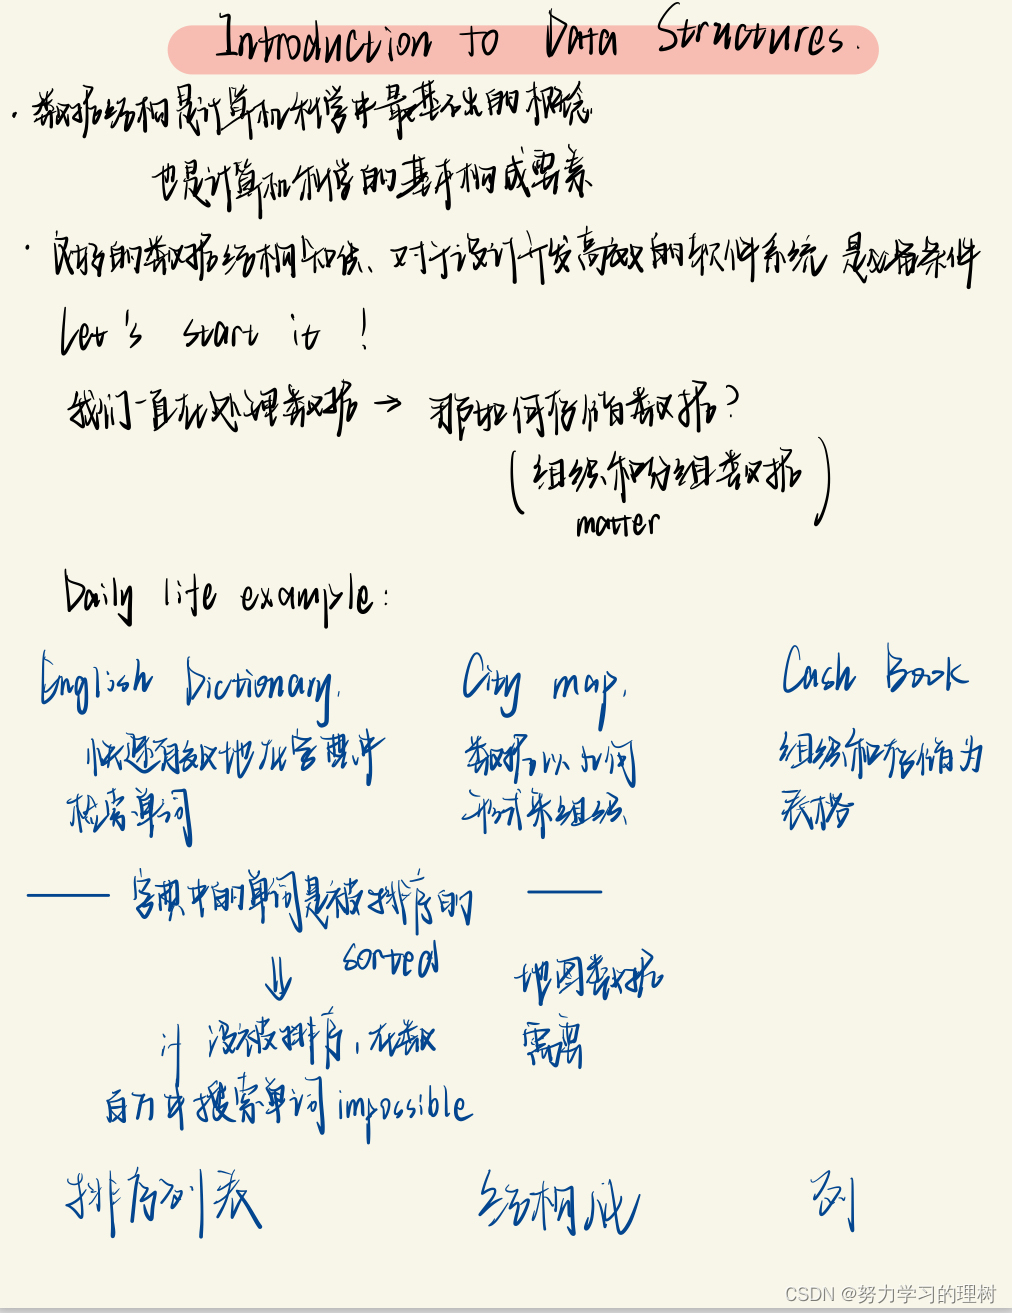 Introduction to Data Structures.
· 数据结构是计算机科学中最基础的概念
也是计算机科学的基本构成要素
· 良好的数据结构知识、对于设计开发高效的软件系统 是必备条件
Let's start it !
我们一直在处理数据 → 那如何存储数据?
(组织和分组数据)
matter
Daily life example:
English Dictionary. City map. Cash Book
快速有效地在字典中 数据以如何 组织和存储为
检索单词 形式来组织 表格
—— 字典中的单词是被排序的 ——
⇓ sorted 地图数据
if 没被排序, 在数 需要
百万中搜索单词 impossible
排序列表 结构化 列
CSDN @努力学习的理树